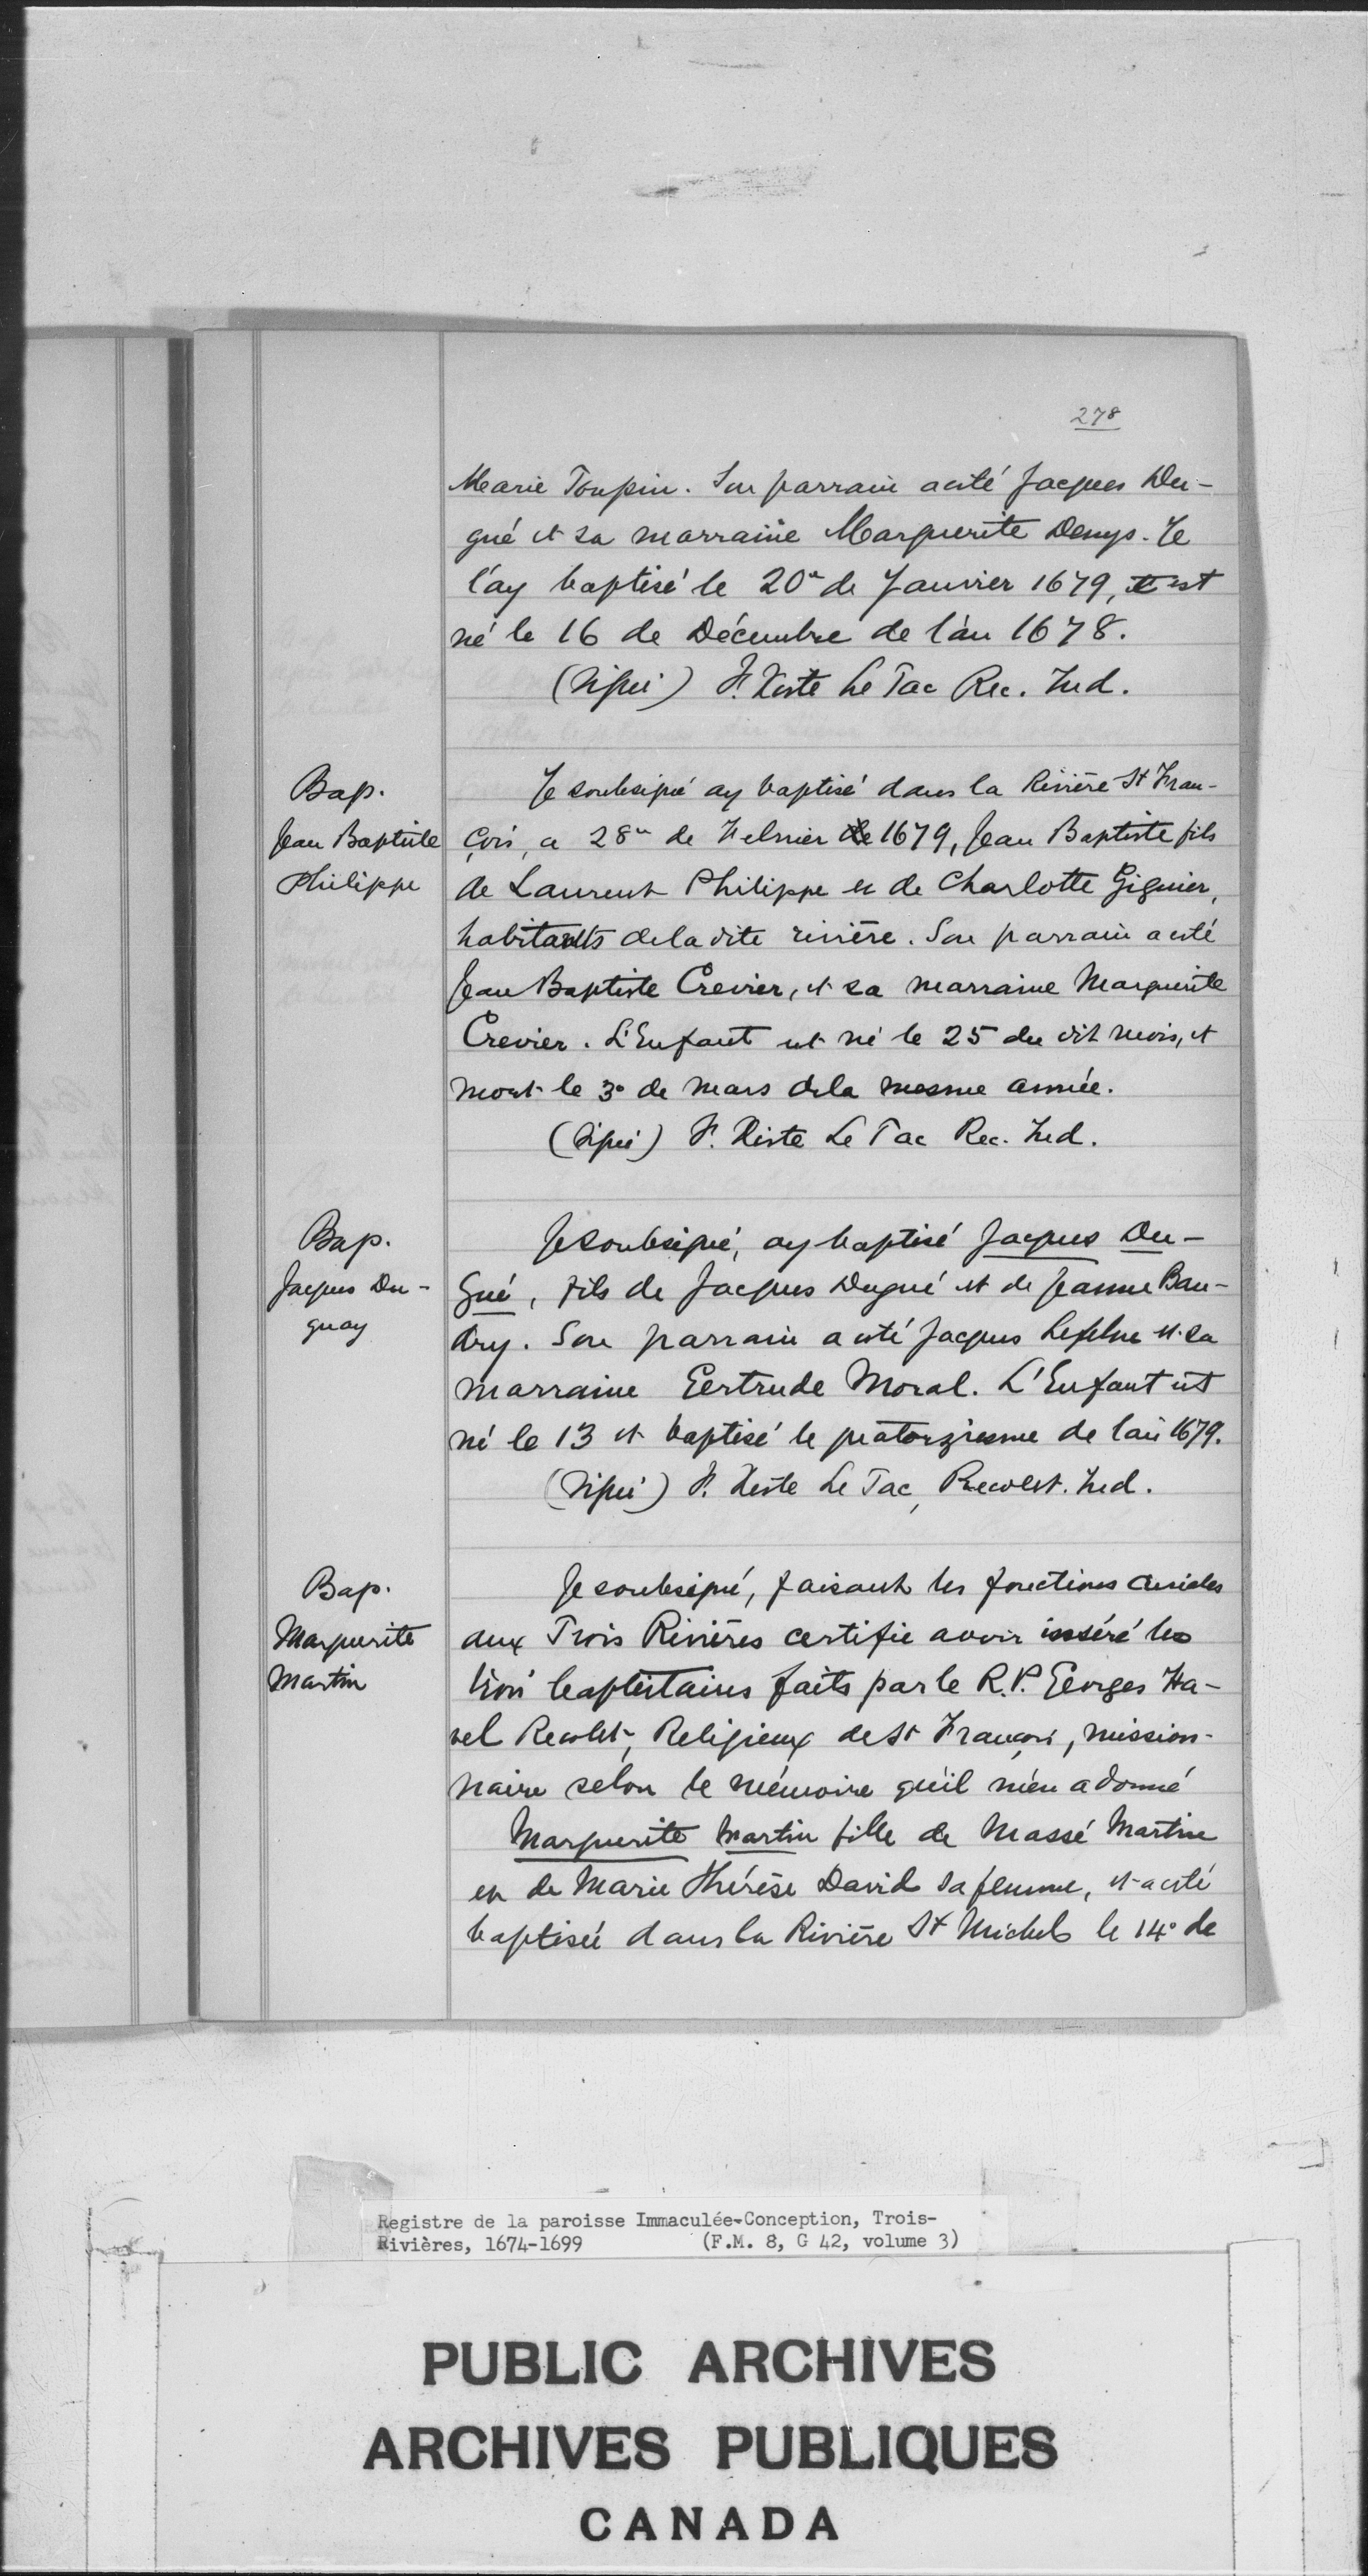 278
Marie Toupin. Son parrain a esté Jacques Du-
gué et sa marraine Marguerite Denys. Je
l'ay baptisé le 20e de Janvier 1679, et est
né le 16 de Décembre de l'an 1678.
(Signé) F. Xiste Le Tac Rec. Ind.
Bap.
Jean Baptiste
Philippe
Je soubsigné ay baptisé dans la Rivière St Fran-
çois, a 28e de Febvrier de 1679, Jean Baptiste fils
de Laurent Philippe et de Charlotte Giguier,
habitants de la dite rivière. Son parrain a esté
Jean Baptiste Crevier, et sa marraine Marguerite
Crevier. L'Enfant est né le 25 du dit mois, et
mort le 3e de mars de la mesme année.
(Signé) F. Xiste Le Tac Rec. Ind.
Bap.
Jacques Du-
guay
Je soubsigné, ay baptisé Jacques Du-
Gué, fils de Jacques Dugué et de Jeanne Bau-
dry. Son parrain a esté Jacques Lefebvre et sa
marraine Gertrude Moral. L'Enfant est
né le 13 et baptisé le quatorziesme de l'an 1679.
(Signé) F. Xiste Le Tac, Recolet. Ind.
Bap.
Marguerite
Martin
Je soubsigné, faisant les fonctions curiales
aux Trois Rivières certifie avoir inséré les
trois baptistaires faits par le R.P. Georges Ha-
vel Recolet, Religieux de St François, mission-
naire selon le mémoire qu'il m'en a donné
Marguerite Martin fille de Massé Martin
et de Marie Thérèse David sa femme, et a esté
baptisée dans la Rivière St Michel le 14e de
Registre de la paroisse Immaculée-Conception, Trois-
Rivières, 1674-1699 (F.M. 8, G 42, volume 3)
PUBLIC ARCHIVES
ARCHIVES PUBLIQUES
CANADA